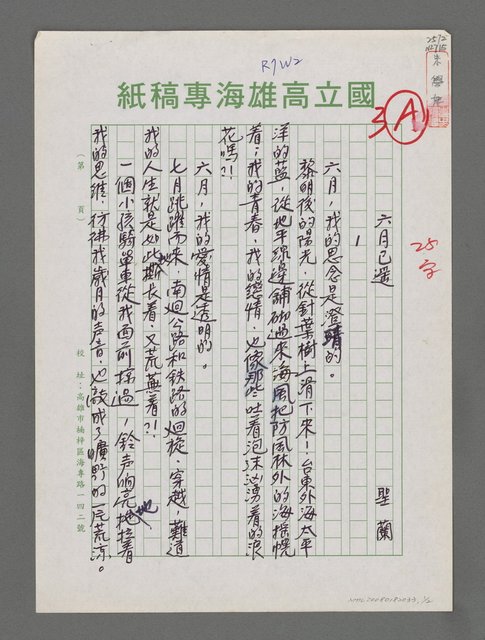 R7W2
2572
國立高雄海專稿紙
3 A
25字
六月已遥
聖蘭
1
六月，我的思念是澄晴的。
黎明後的陽光，從針葉樹上滑下來！台東外海太平
洋的藍，從地平線邊舖砌過來海風把防風林外的海搖幌
着；我的青春，我的戀情，也像那些吐着泡沫汹湧着的浪
花嗎?!
六月，我的愛情是透明的。
七月跳躍而來，南廻公路和鉄路的廻旋，穿越，難道
我的人生就是如此撕長着，又荒蕪着?!
一個小孩騎單車從我面前掠過，鈴声响亮地拖着
我的思維，彷彿我歲月的声音，也敲成了曠野的一片荒凉。
（第　頁）
校址：高雄市楠梓區海專路一四二號
NMTL20080180033, 1/2